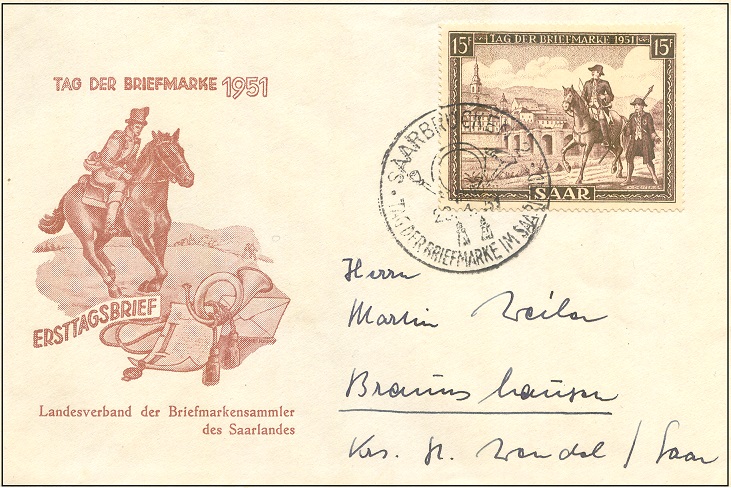 TAG DER BRIEFMARKE 1951
ERSTTAGSBRIEF
Landesverband der Briefmarkensammler
des Saarlandes
15F TAG DER BRIEFMARKE 1951 15F
SAAR
SAARBRÜCKEN 2
TAG DER BRIEFMARKE IM SAAR
Herrn
Martin Weiler
Braunshausen
Krs. St. Wendel / Saar